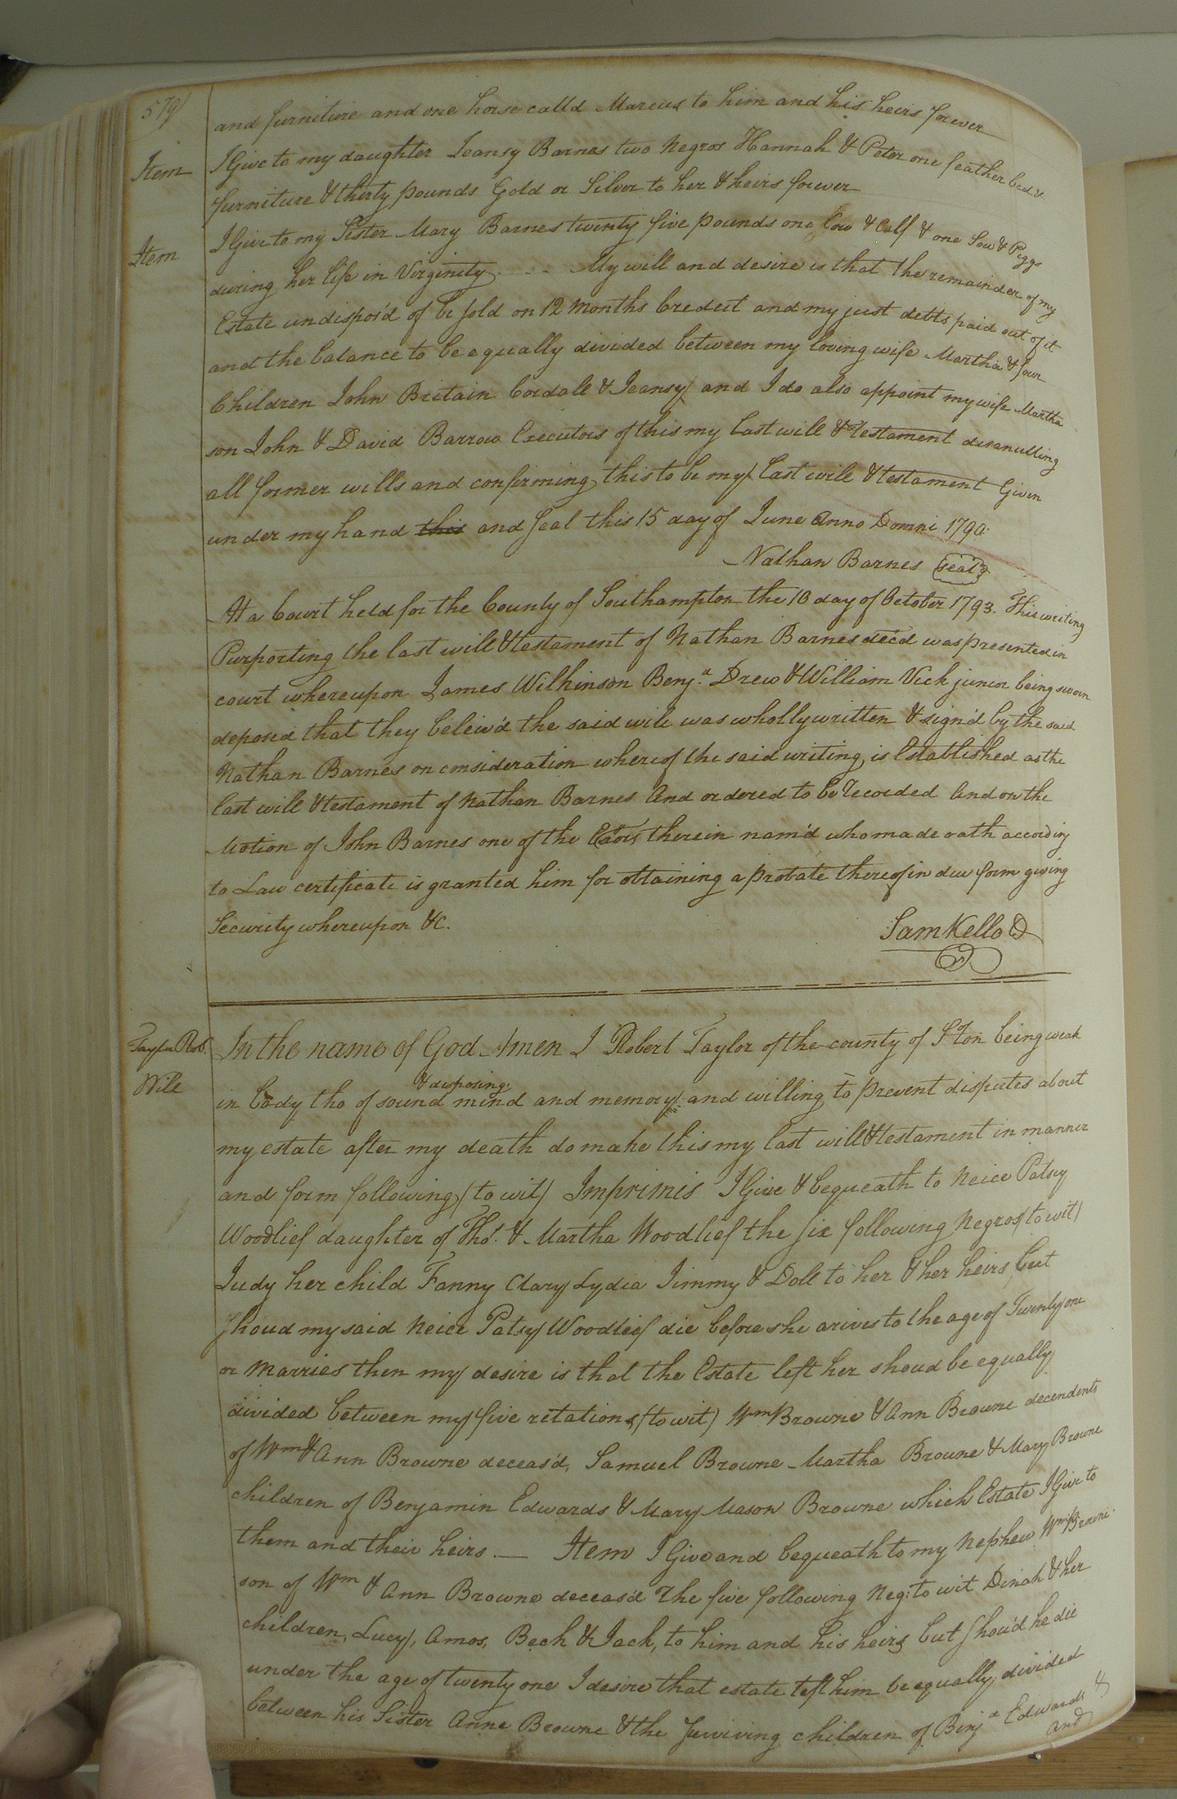 579
and furniture and one horse calld Marcus to him and his heirs forever
Item I Give to my daughter Jeansy Barnes two Negros Hannah & Peter one feather bed &
furniture & thirty pounds Gold or Silver to her & heirs forever
Item I Give to my Sister Mary Barnes twenty five pounds one Cow & Calf & one Sow & Piggs
during her life in Virginity - - - My will and desire is that the remainder of my
Estate undispos'd of be sold on 12 Months Credeit and my just debts paid out of it
and the balance to be equally divided between my loving wife Martha & four
Children John Britain Cordall & Jeansy and I do also appoint my wife Martha
son John & David Barrow Executors of this my last will & Testament disanulling
all former wills and confirming this to be my last will & testament Given
under my hand this and seal this 15 day of June Anno Domni 1790
Nathan Barnes seal
At a Court held for the County of Southampton the 10 day of October 1793. This writing
Purporting the last will & testament of Nathan Barnes decd was presented in
court whereupon James Wilkinson Benja Drew & William Vick junior being sworn
deposed that they beleiv'd the said will was wholly written & sign'd by the said
Nathan Barnes on consideration whereof the said writing, is Established as the
last will & testament of Nathan Barnes And ordered to be recorded And on the
Motion of John Barnes one of the Exors therein nam'd who made oath according
to Law certificate is granted him for obtaining a probate thereof in due form giving
Security whereupon &c.
Sam Kello
Taylor Rob. In the name of God Amen I Robert Taylor of the county of S Ton being weak
Will
& disposing
in body tho of sound mind and memory and willing to prevent disputes about
my estate after my death do make this my last will & testament in manner
and form following (to wit) Imprimis I Give & bequeath to Neice Patsy
Woodlief daughter of Thos. & Martha Woodlief the six following Negros (to wit)
Judy her child Fanny Clary Lydia Jimmy & Doll to her & her heirs but
shoud my said Neice Patsy Woodlief die before she arives to the age of Twenty one
or Marries then my desire is that the Estate left her shoud be equally
divided between my five relations (to wit) Wm Browne & Ann Browne decendents
of Wm & Ann Browne deceas'd, Samuel Browne Martha Browne & Mary Browne
children of Benjamin Edwards & Mary Mason Browne which Estate I Give to
them and their heirs. — Item I Give and bequeath to my Nephew Wm Browne
son of Wm & Ann Browne deceas'd The five following Neg: to wit Dinah & her
children, Lucy, Amos, Beck & Jack, to him and his heirs but shou'd he die
under the age of twenty one I desire that estate left him be equally divided
between his Sister Anne Browne & the surviving children of Benja Edwards &
and